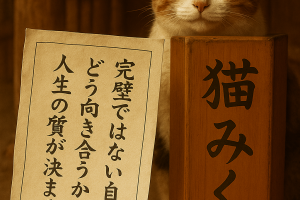 完璧ではない自
どう向き合うか
人生の質が決ま
猫みく